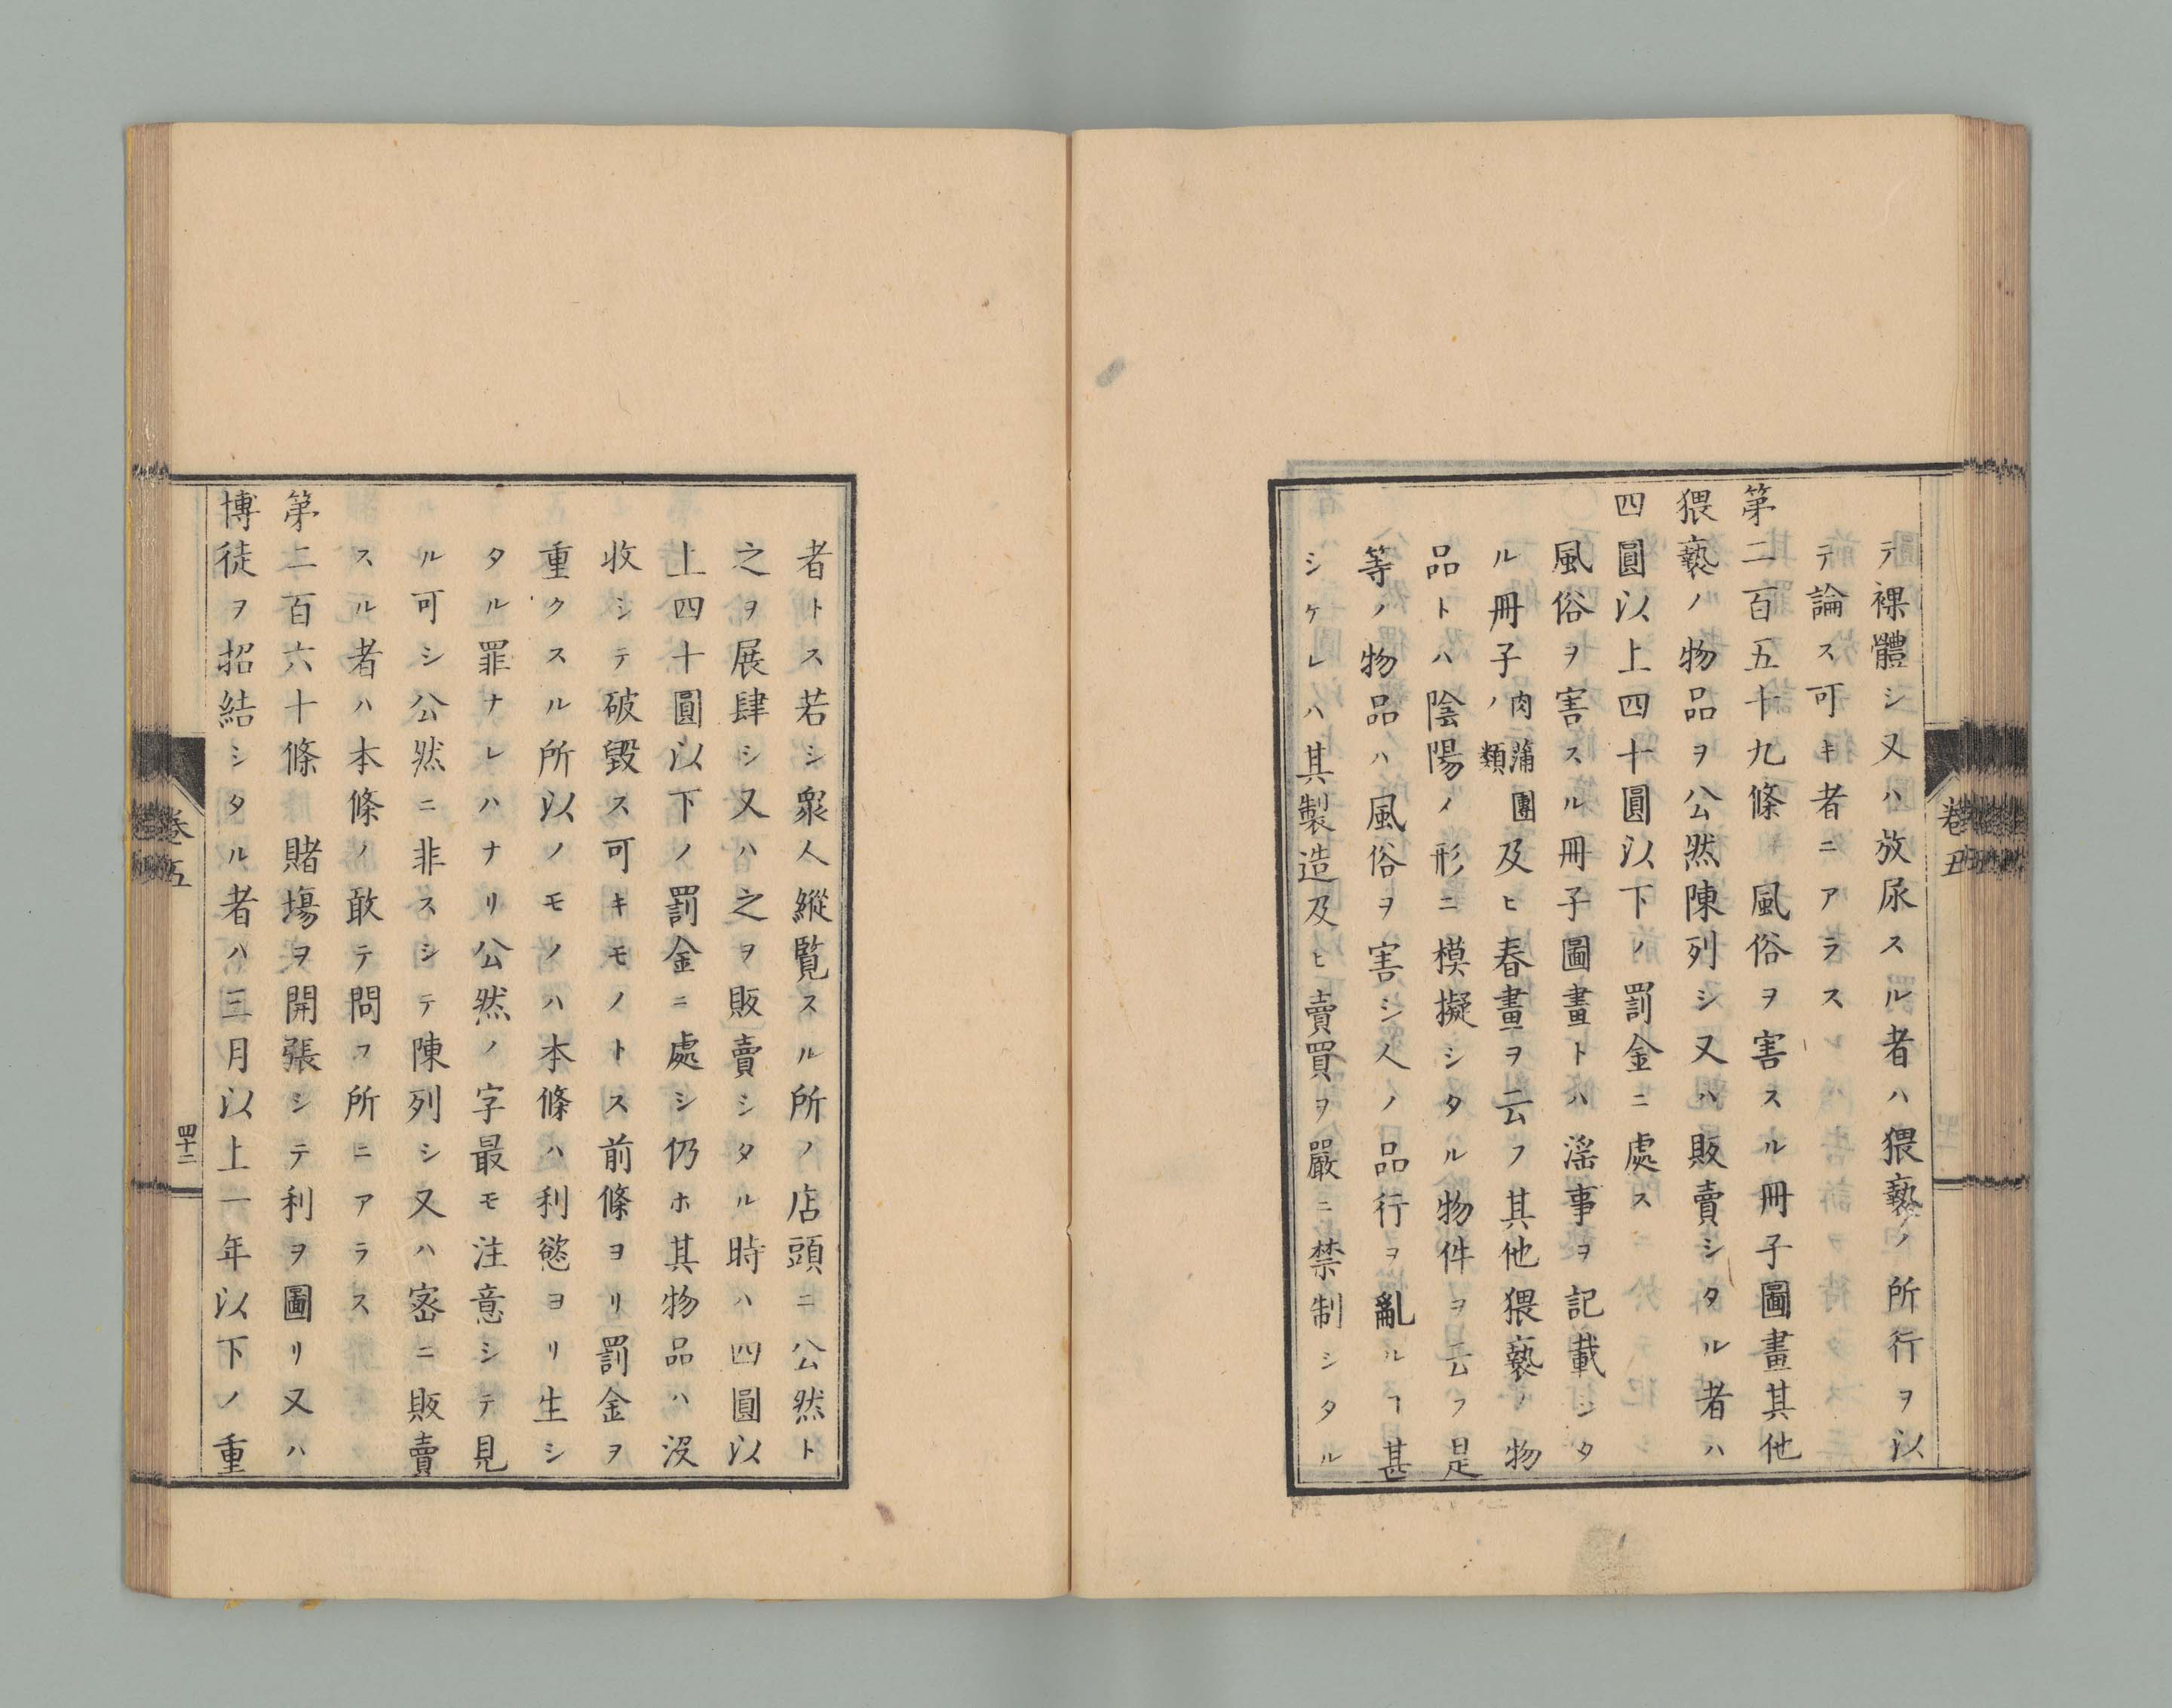 テ裸體シ又ハ放尿スル者ハ猥褻ノ所行ヲ以
テ論ス可キ者ニアラス
第二百五十九條 風俗ヲ害スル冊子圖畫其他
猥褻ノ物品ヲ公然陳列シ又ハ販賣シタル者ハ
四圓以上四十圓以下ノ罰金ニ處ス
風俗ヲ害スル冊子圖畫トハ滛事ヲ記載シタ
ル冊子肉蒲團ノ類及ヒ春畫ヲ云フ其他猥褻ノ物
品トハ陰陽ノ形ニ模擬シタル物件ヲ云フ是
等ノ物品ハ風俗ヲ害シ人ノ品行ヲ亂ルヿ甚
シケレハ其製造及ヒ賣買ヲ嚴ニ禁制シタル
卷五
者トス若シ衆人縱覧スル所ノ店頭ニ公然ト
之ヲ展肆シ又ハ之ヲ販賣シタル時ハ四圓以
上四十圓以下ノ罰金ニ處シ仍ホ其物品ハ沒
收シテ破毀ス可キモノトス前條ヨリ罰金ヲ
重クスル所以ノモノハ本條ハ利慾ヨリ生シ
タル罪ナレハナリ公然ノ字最モ注意シテ見
ル可シ公然ニ非スシテ陳列シ又ハ宻ニ販賣
スル者ハ本條ノ敢テ問フ所ニアラス
第二百六十條 賭塲ヲ開張シテ利ヲ圖リ又ハ
博徒ヲ招結シタル者ハ三月以上一年以下ノ重
卷五
四十二